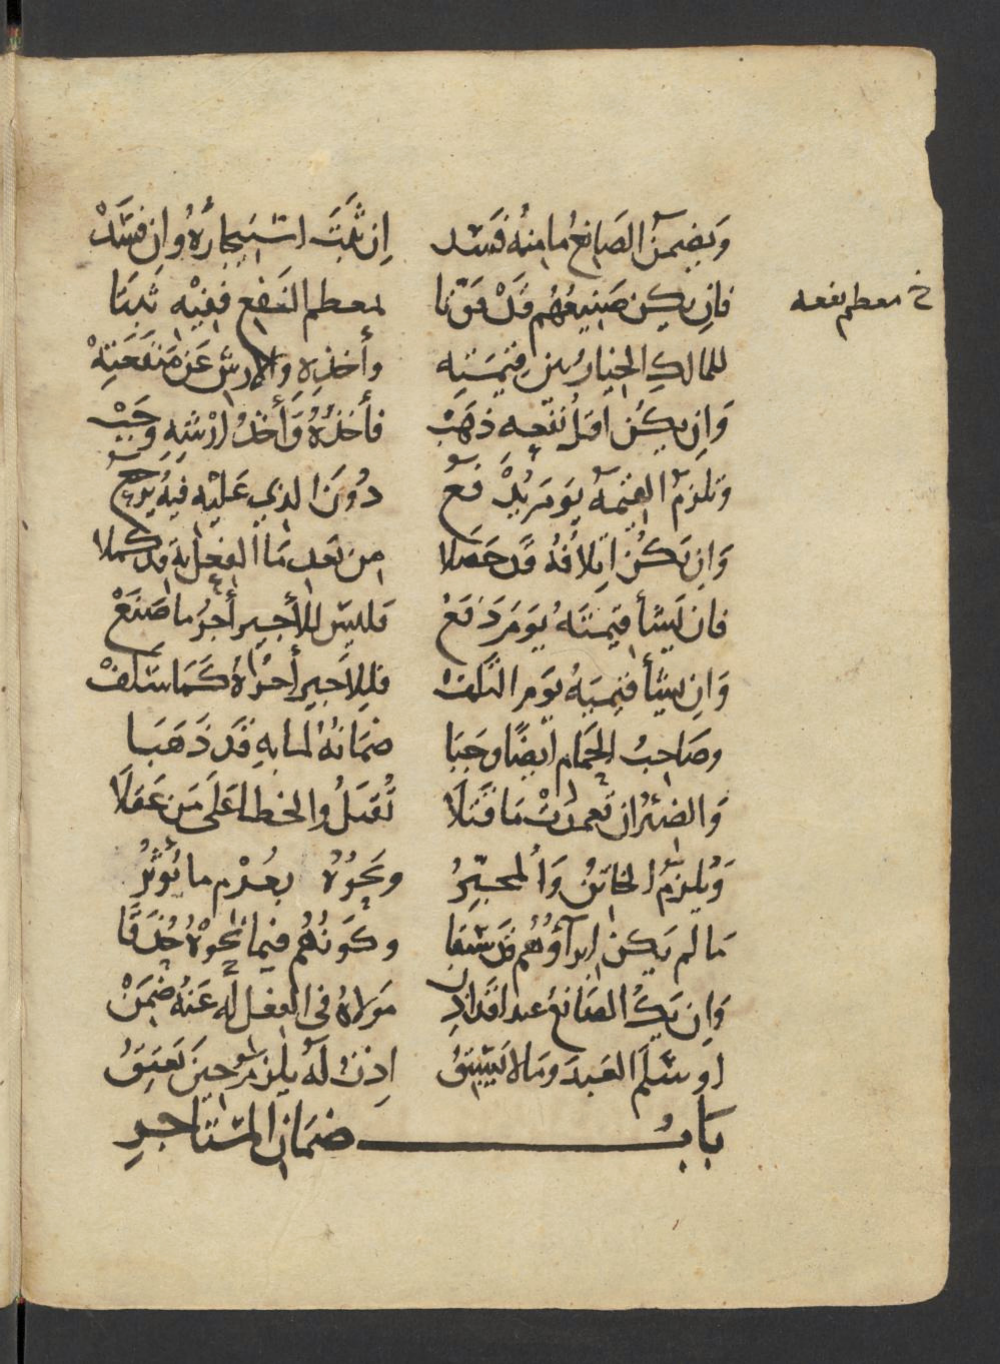 وَيَضمنُ الصَانعُ ما منهُ فَسَد إن ثَبَتَ استيجارُهُ وان فَسَدْ
فان يكن صَنيعُهُم قَدْ فوّتا لمعظم النَفع ففيْه ثَبتَا
خ معظم نفعه
للمالكِ الخيارُ بين قيمَتِه وأخذِهِ والارش عَن مَنفعَتِهْ
وَإن يكُن اقلُ نفعه ذهَبْ فأخذُهُ وَأخذُ ارْشِهِ وَجَبْ
وتلزمُ القيمَهُ يَومَ دُونَ الذي عَليْه فيهِ
وَان يَكُن اتلافُهُ قَد حَصَلا من بَعد مَا الفعلُ بهِ قد كملا
فان يَشأ قيمتَهُ يَومَ دَفَعْ فليسَ للأجيرِ أجرُ ما صَنَعْ
وَان يشأ قيمتَهُ يَوم التَلَفْ فللأجير أجْرُهُ كَمَا سَلَفْ
وصَاحبُ الحَمام ايضًا وجَبَا ضمَانُهُ لما بهِ قَد ذَهَبَا
وَالضئرُ ان تَعمدَتْ مَا قَتَلا تُقتَلُ والخطا عَلَى مَن عَقلَا
وَيُلزمُ الخاتنُ وَالمجبّرُ ونحوُهُ بجُرْمِ ما يُؤثرُ
مَا لم يَكن ابرآؤُهُم قَد سَبَقا وكَونُهُم فيما نحوْهُ حُذَقَا
وَان يَكُ الصَانعُ عبد اقد اذن مَولاهُ في الفعل لَه عَنهُ ضَمَنْ
او سَلَّم العَبدَ ومَا لا يَسبقُ اِذنٌ لَهُ يَلزمُ حينَ يَعتِقُ
بَابُ ضمَان المُستأجرِ